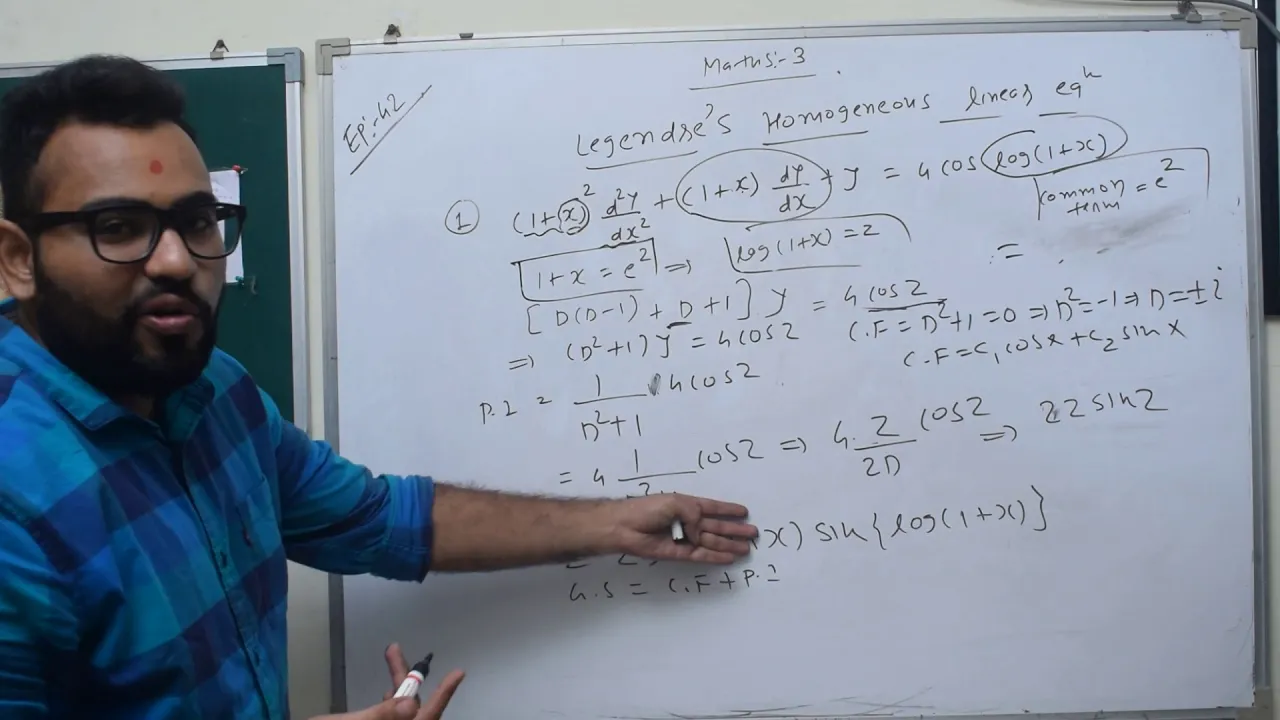 Maths:- 3
Ep:- 42
Legendre's Homogeneous linear eqn
① (1+x)² d²y/dx² + (1+x) dy/dx + y = 4 cos log(1+x)
common term = e^z
1+x = e^z ⇒ log(1+x) = z
=
[D(D-1) + D + 1] y = 4 cos z
⇒ (D²+1) y = 4 cos z
C.F = D²+1 = 0 ⇒ D² = -1 ⇒ D = ± i
C.F = C₁ cos x + C₂ sin x
P.I = 1/(D²+1) 4 cos z
= 4 1/ cos z ⇒ 4. z/2D cos z ⇒ 2z sin z
x) sin{log(1+x)}
G.S = C.F + P.I